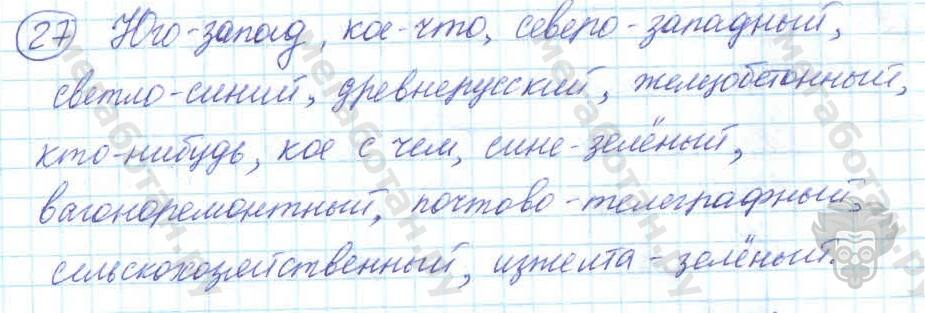 27 Юго-запад, кое-что, северо-западный,
светло-синий, древнерусский, желзобетонный,
кто-нибудь, кое с чем, сине-зелёный,
вагоноремонтный, почтово-телеграфный,
сельскохозяйственный, изжелта-зелёный.
Мегаботан.ру